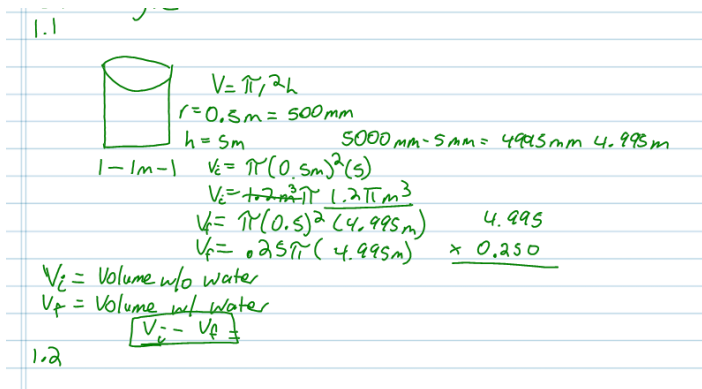 1.1
V = πr²h
r = 0.5m = 500mm
h = 5m 5000mm - 5mm = 4995mm 4.995m
|— 1m —| Vi = π(0.5m)²(5)
Vi = 1.2m³π 1.2πm³
Vf = π(0.5)²(4.995m) 4.995
Vf = .25π(4.995m) × 0.250
Vi = Volume w/o water
Vf = Volume w/ water
Vi - Vf =
1.2